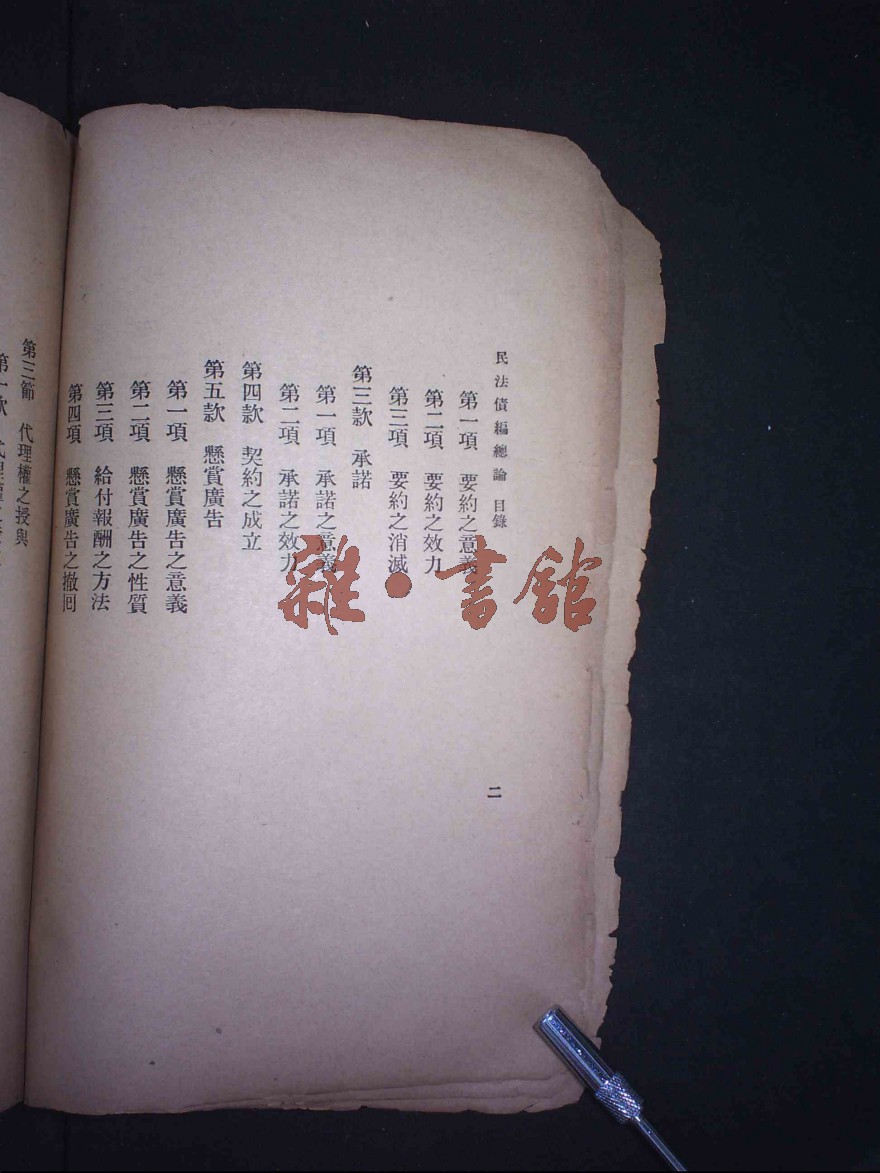 民法債編總論 目錄
二
第一項 要約之意義
第二項 要約之效力
第三項 要約之消滅
第三款 承諾
第一項 承諾之意義
第二項 承諾之效力
第四款 契約之成立
第五款 懸賞廣告
第一項 懸賞廣告之意義
第二項 懸賞廣告之性質
第三項 給付報酬之方法
第四項 懸賞廣告之撤囘
第三節 代理權之授與
雜·書館